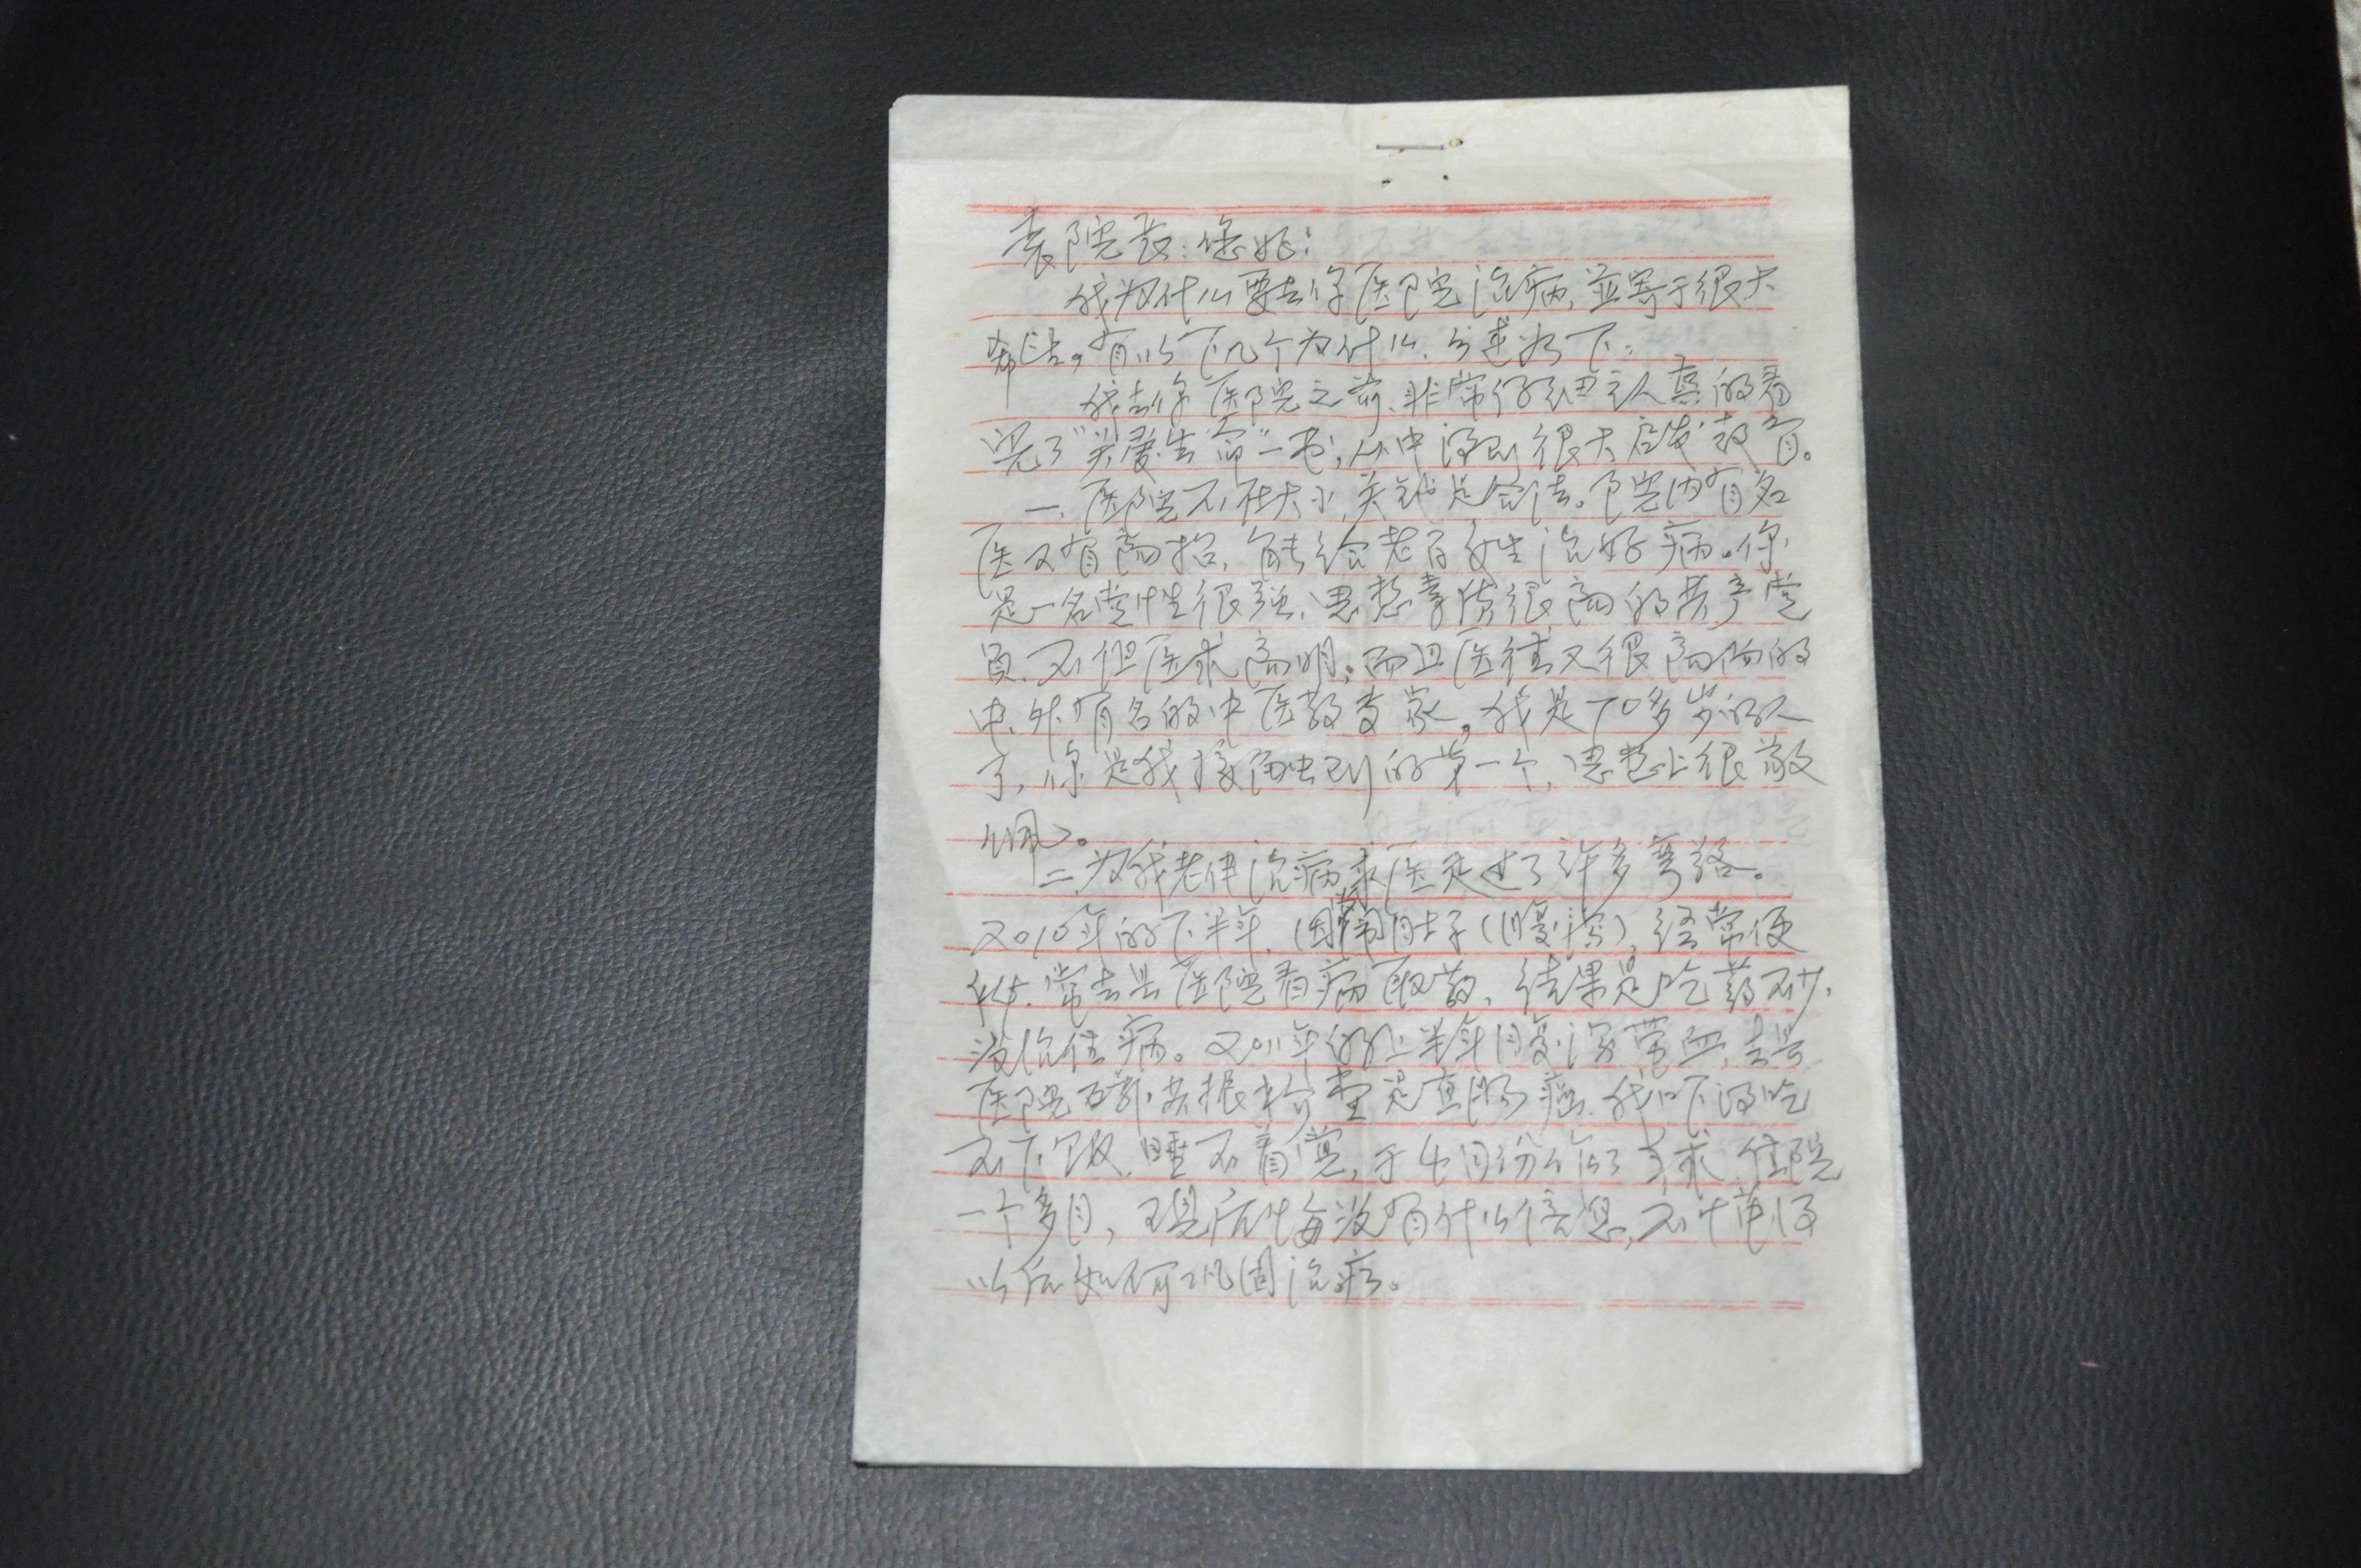 袁院长：您好！
我为什么要去你医院治病，并寄于很大
希望。有以下几个为什么，分述如下：
我去你医院之前，非常仔细认真的看
完了“关爱生命”一书，从中得到很大启发教育。
一、医院不在大小，关键是合法。院内有名
医又有高招，能给老百姓生治好病。你
是一名党性很强，思想素质很高的共产党
员，不但医术高明，而且医德又很高尚的
中、外有名的中医教专家，我是70多岁的人
了，你是我接触到的第一个，思想上很敬
佩。
二、为我老伴治病求医走过了许多弯路。
2010年的下半年，因常闹肚子（腹泻），经常便
稀，常去县医院看病取药，结果是吃药不少，
没治住病。2011年的上半年腹泻带血，去县
医院磁共振检查是直肠癌，我吓得吃
不下饭，睡不着觉，于4月份作了手术，住院
一个多月，现后悔没有什么信息，不懂得
以后如何巩固治疗。